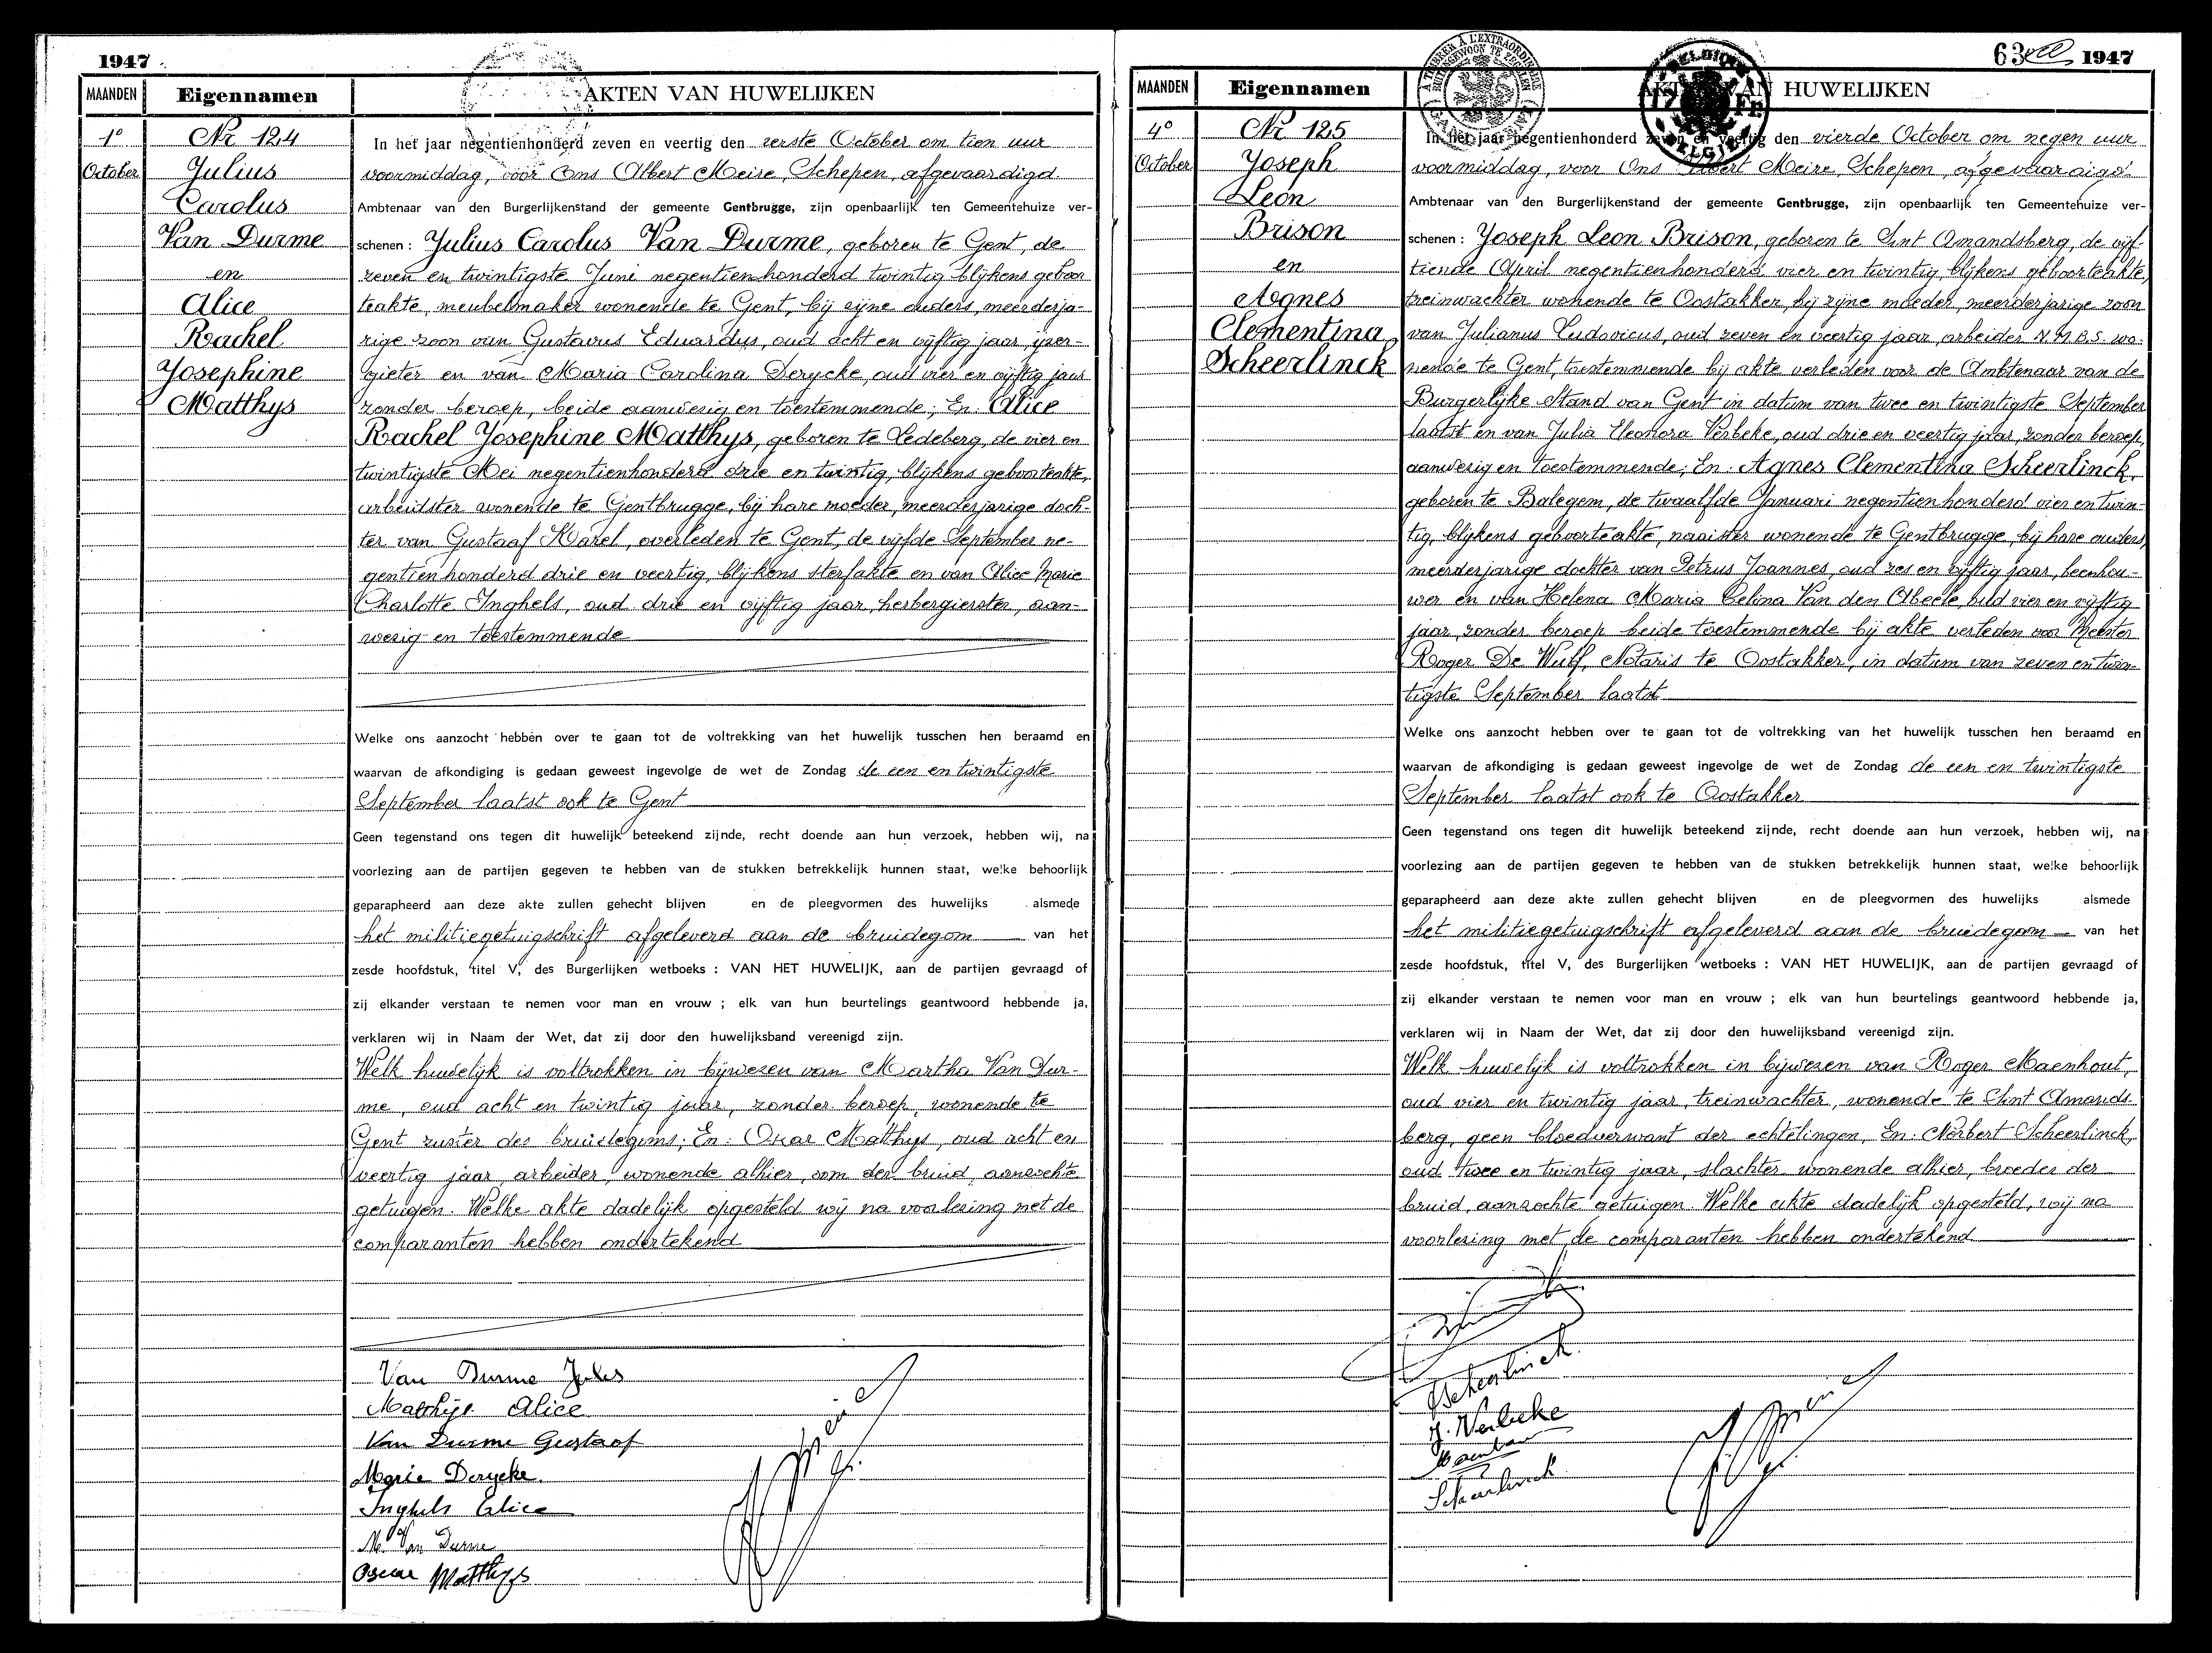 1947
MAANDEN
Eigennamen
AKTEN VAN HUWELIJKEN
1°
October
Nr 124
Julius
Carolus
Van Durme
en
Alice
Rachel
Josephine
Matthys
In het jaar negentienhonderd zeven en veertig den eerste October om tien uur
voormiddag, voor Ons Albert Meire, Schepen, afgevaardigd
Ambtenaar van den Burgerlijkenstand der gemeente Gentbrugge, zijn openbaarlijk ten Gemeentehuize ver-
schenen : Julius Carolus Van Durme, geboren te Gent, de
zeven en twintigste Juni negentienhonderd twintig, blijkens geboor
teakte, meubelmaker wonende te Gent, bij zijne ouders, meerderja-
rige zoon van Gustavus Eduardus, oud acht en vijftig jaar, ijzer-
gieter en van Maria Carolina Derycke, oud vier en vijftig jaar
zonder beroep, beide aanwezig en toestemmende; En: Alice
Rachel Josephine Matthys, geboren te Ledeberg, de vier en
twintigste Mei negentienhonderd drie en twintig, blijkens geboorteakte,
arbeidster wonende te Gentbrugge, bij hare moeder, meerderjarige doch-
ter van Gustaaf Karel, overleden te Gent, de vijfde September ne-
gentienhonderd drie en veertig, blijkens sterfakte en van Alice Marie
Charlotte Inghels, oud drie en vijftig jaar, herbergierster, aan-
wezig en toestemmende
Welke ons aanzocht hebben over te gaan tot de voltrekking van het huwelijk tusschen hen beraamd en
waarvan de afkondiging is gedaan geweest ingevolge de wet de Zondag de een en twintigste
September laatst ook te Gent
Geen tegenstand ons tegen dit huwelijk beteekend zijnde, recht doende aan hun verzoek, hebben wij, na
voorlezing aan de partijen gegeven te hebben van de stukken betrekkelijk hunnen staat, welke behoorlijk
geparapheerd aan deze akte zullen gehecht blijven en de pleegvormen des huwelijks alsmede
het militiegetuigschrift afgeleverd aan de bruidegom van het
zesde hoofdstuk, titel V, des Burgerlijken wetboeks : VAN HET HUWELIJK, aan de partijen gevraagd of
zij elkander verstaan te nemen voor man en vrouw ; elk van hun beurtelings geantwoord hebbende ja,
verklaren wij in Naam der Wet, dat zij door den huwelijksband vereenigd zijn.
Welk huwelijk is voltrokken in bijwezen van Martha Van Dur-
me, oud acht en twintig jaar, zonder beroep, wonende te
Gent zuster des bruidegoms; En: Oskar Matthys, oud acht en
veertig jaar, arbeider, wonende alhier, oom der bruid, aanzochte
getuigen. Welke akte dadelijk opgesteld wij na voorlezing met de
comparanten hebben ondertekend
Van Durme Jules
Matthijs Alice
Van Durme Gustaaf
Marie Derycke
Inghels Alice
M. Van Durme
Oscar Matthys
63 1947
MAANDEN
Eigennamen
AKTEN VAN HUWELIJKEN
4°
October
Nr 125
Joseph
Leon
Brison
en
Agnes
Clementina
Scheerlinck
In het jaar negentienhonderd zeven en veertig den vierde October om negen uur
voormiddag, voor Ons Albert Meire, Schepen, afgevaardigd
Ambtenaar van den Burgerlijkenstand der gemeente Gentbrugge, zijn openbaarlijk ten Gemeentehuize ver-
schenen : Joseph Leon Brison, geboren te Sint Amandsberg, de vijf-
tiende April negentienhonderd vier en twintig, blijkens geboorteakte,
treinwachter wonende te Oostakker, bij zijne moeder, meerderjarige zoon
van Julianus Ludovicus, oud zeven en veertig jaar, arbeider N.M.B.S. wo-
nende te Gent, toestemmende bij akte verleden voor de Ambtenaar van de
Burgerlijke Stand van Gent in datum van twee en twintigste September
laatst en van Julia Eleonora Verbeke, oud drie en veertig jaar, zonder beroep,
aanwezig en toestemmende; En: Agnes Clementina Scheerlinck,
geboren te Balegem, de twaalfde Januari negentienhonderd vier en twin-
tig, blijkens geboorteakte, naaister wonende te Gentbrugge, bij hare ouders,
meerderjarige dochter van Petrus Joannes, oud zes en vijftig jaar, beenhou-
wer en van Helena Maria Celina Van den Abeele, oud vier en vijftig
jaar, zonder beroep beide toestemmende bij akte verleden voor Meester
Roger De Wulf, Notaris te Oostakker, in datum van zeven en twin-
tigste September laatst
Welke ons aanzocht hebben over te gaan tot de voltrekking van het huwelijk tusschen hen beraamd en
waarvan de afkondiging is gedaan geweest ingevolge de wet de Zondag de een en twintigste
September laatst ook te Oostakker
Geen tegenstand ons tegen dit huwelijk beteekend zijnde, recht doende aan hun verzoek, hebben wij, na
voorlezing aan de partijen gegeven te hebben van de stukken betrekkelijk hunnen staat, welke behoorlijk
geparapheerd aan deze akte zullen gehecht blijven en de pleegvormen des huwelijks alsmede
het militiegetuigschrift afgeleverd aan de bruidegom van het
zesde hoofdstuk, titel V, des Burgerlijken wetboeks : VAN HET HUWELIJK, aan de partijen gevraagd of
zij elkander verstaan te nemen voor man en vrouw ; elk van hun beurtelings geantwoord hebbende ja,
verklaren wij in Naam der Wet, dat zij door den huwelijksband vereenigd zijn.
Welk huwelijk is voltrokken in bijwezen van Roger Maenhout,
oud vier en twintig jaar, treinwachter, wonende te Sint Amands-
berg, geen bloedverwant der echtelingen, En: Norbert Scheerlinck,
oud twee en twintig jaar, slachter wonende alhier, broeder der
bruid, aanzochte getuigen. Welke akte dadelijk opgesteld, wij na
voorlezing met de comparanten hebben ondertekend
Scheerlinck
J. Verbeke
Scheerlinck